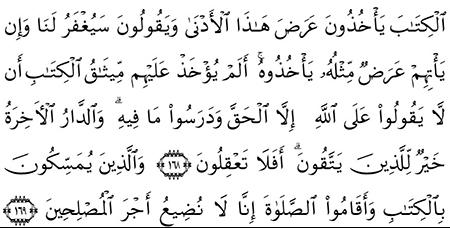 ٱلۡكِتَٰبَ يَأۡخُذُونَ عَرَضَ هَٰذَا ٱلۡأَدۡنَىٰ وَيَقُولُونَ سَيُغۡفَرُ لَنَا وَإِن
يَأۡتِهِمۡ عَرَضٞ مِّثۡلُهُۥ يَأۡخُذُوهُۚ أَلَمۡ يُؤۡخَذۡ عَلَيۡهِم مِّيثَٰقُ ٱلۡكِتَٰبِ أَن
لَّا يَقُولُواْ عَلَى ٱللَّهِ إِلَّا ٱلۡحَقَّ وَدَرَسُواْ مَا فِيهِۗ وَٱلدَّارُ ٱلۡأٓخِرَةُ
خَيۡرٞ لِّلَّذِينَ يَتَّقُونَۚ أَفَلَا تَعۡقِلُونَ ١٦٨ وَٱلَّذِينَ يُمَسِّكُونَ
بِٱلۡكِتَٰبِ وَأَقَامُواْ ٱلصَّلَوٰةَ إِنَّا لَا نُضِيعُ أَجۡرَ ٱلۡمُصۡلِحِينَ ١٦٩